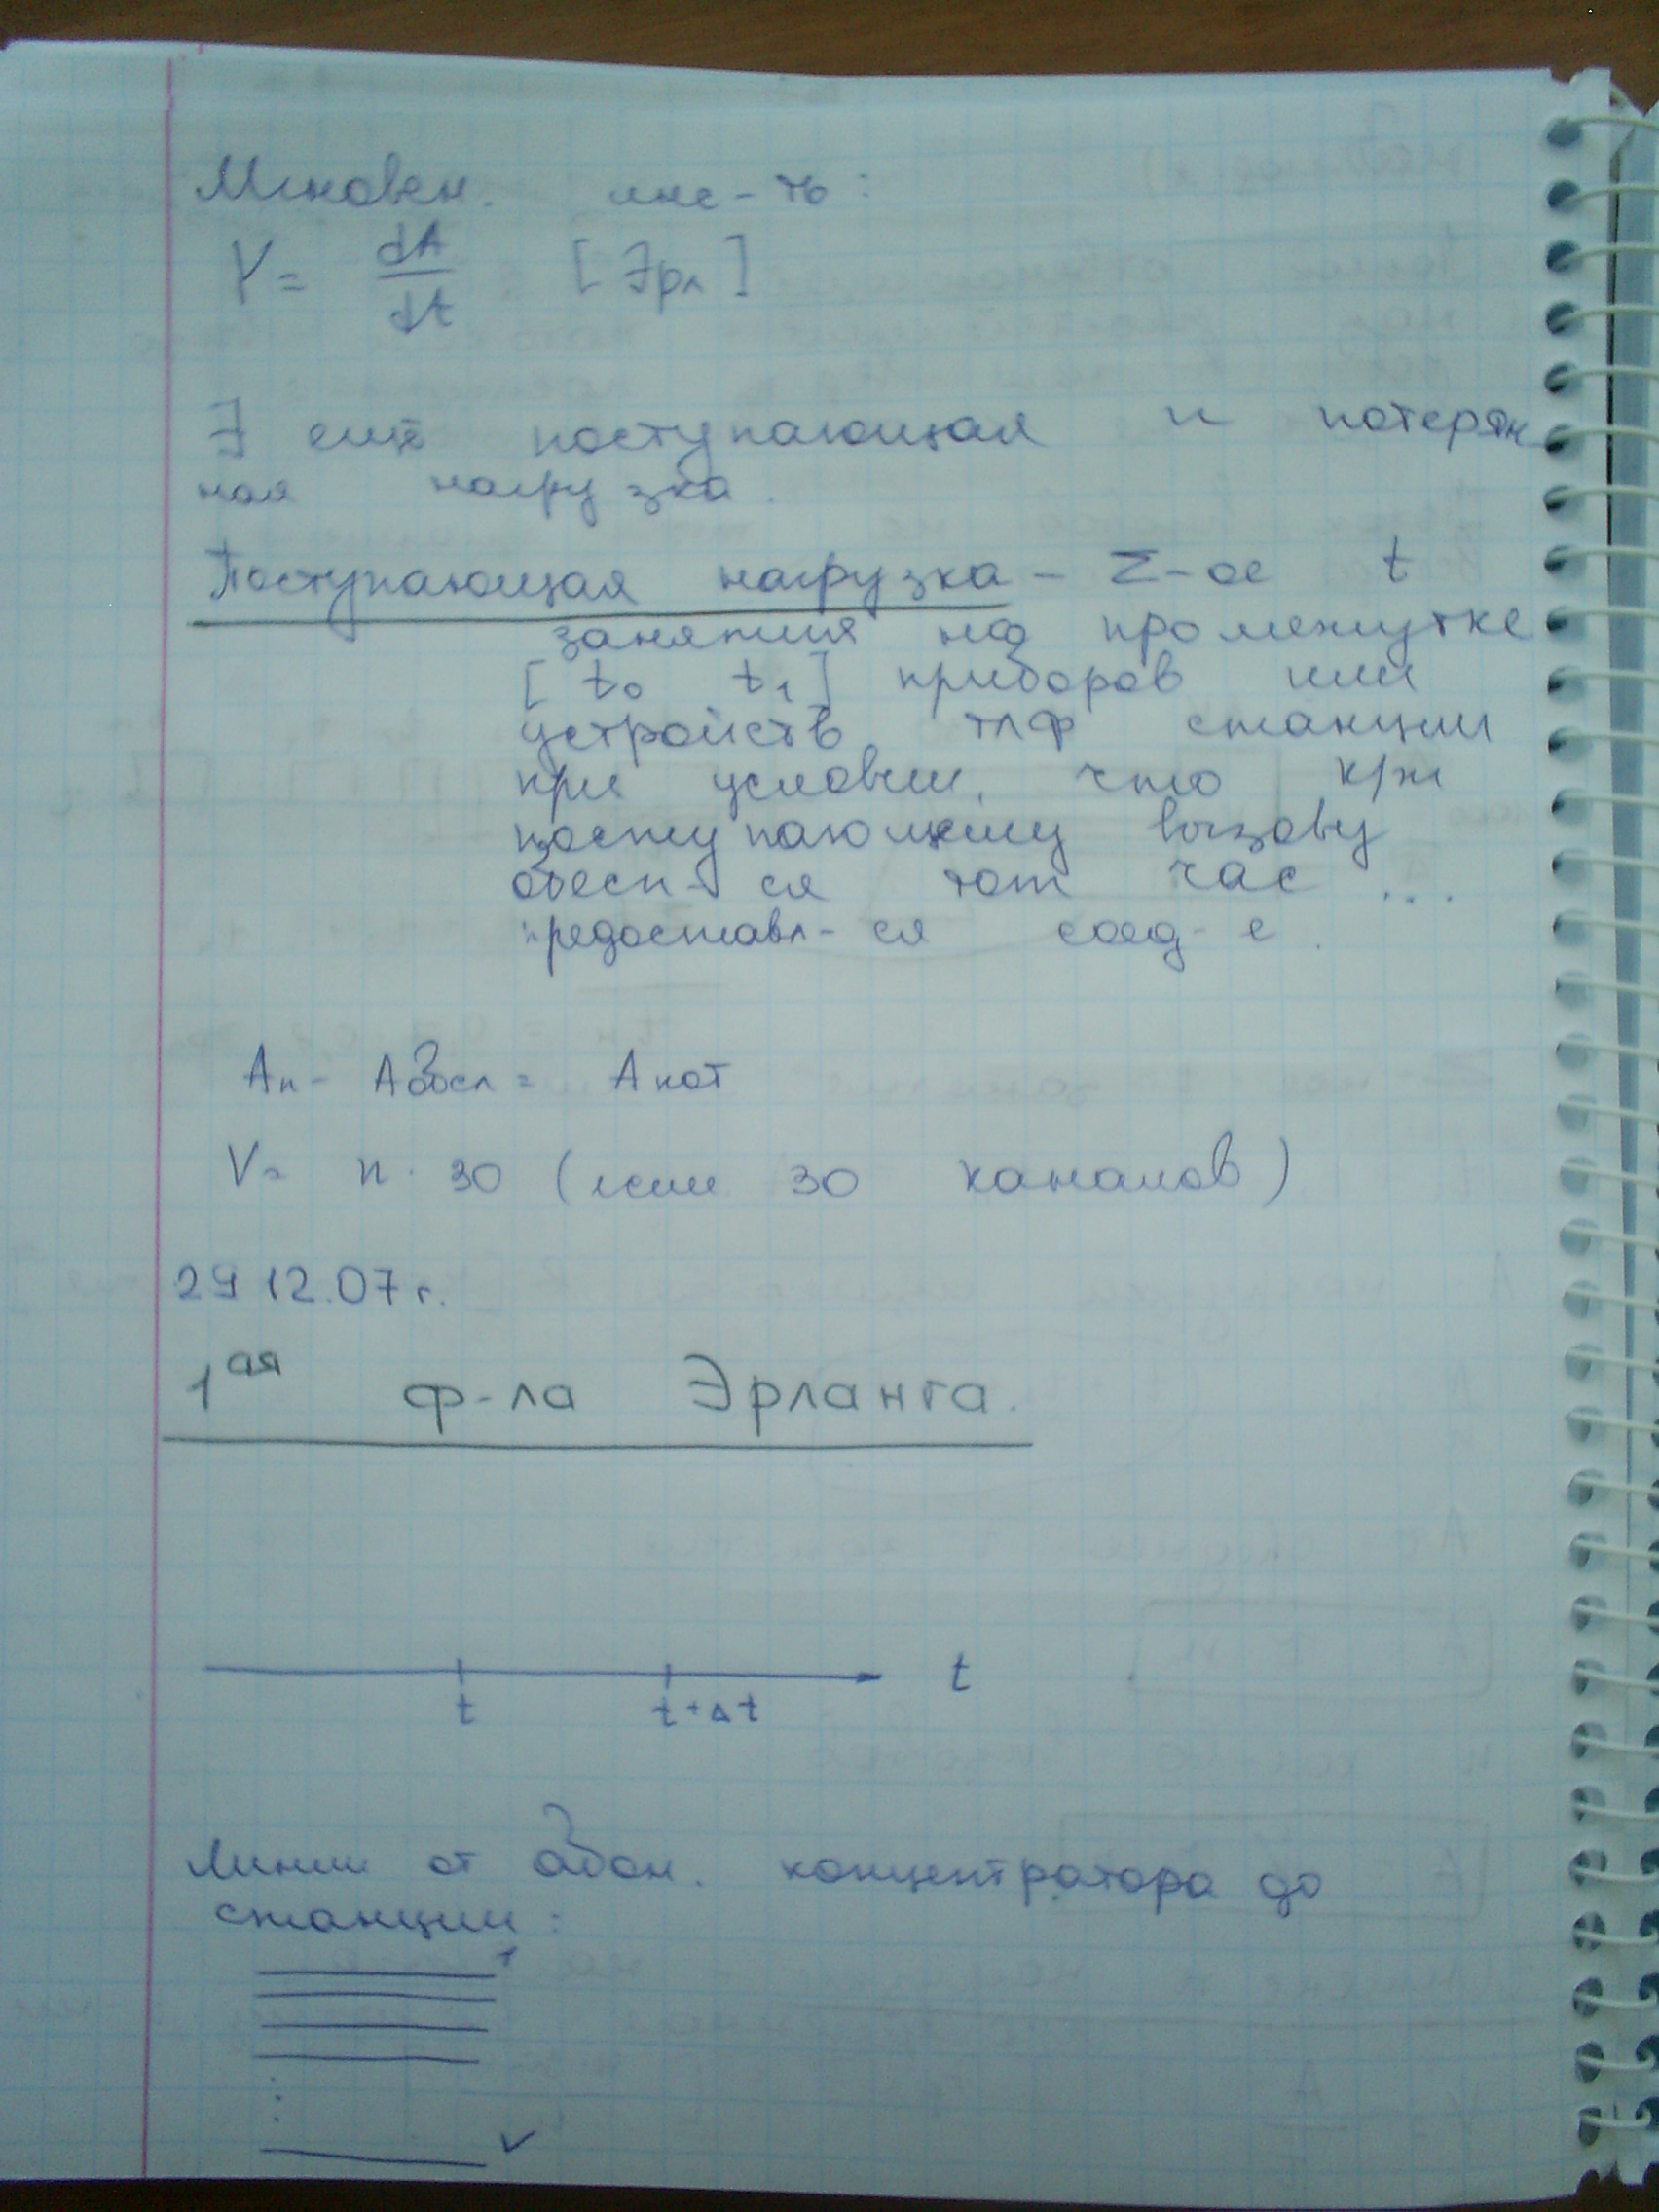 Мгновен. инс-ть:
Y = dA/dt [Эрл]
∃ ещё поступающая и потерян
ная нагрузка.
Поступающая нагрузка – Σ-ое t
занятия на промежутке
[t₀ t₁] приборов или
устройств тлф станции
при условии, что к/ж
поступающему вызову
обесп-ся тот час ...
предоставл-ся соед-е.
Aп - Aобсл = Aпот
V = n · 30 (если 30 каналов)
29 12.07 г.
1ая ф-ла Эрланга.
t
t t+Δt
Линии от абон. концентратора до
станции:
1
⋮
v